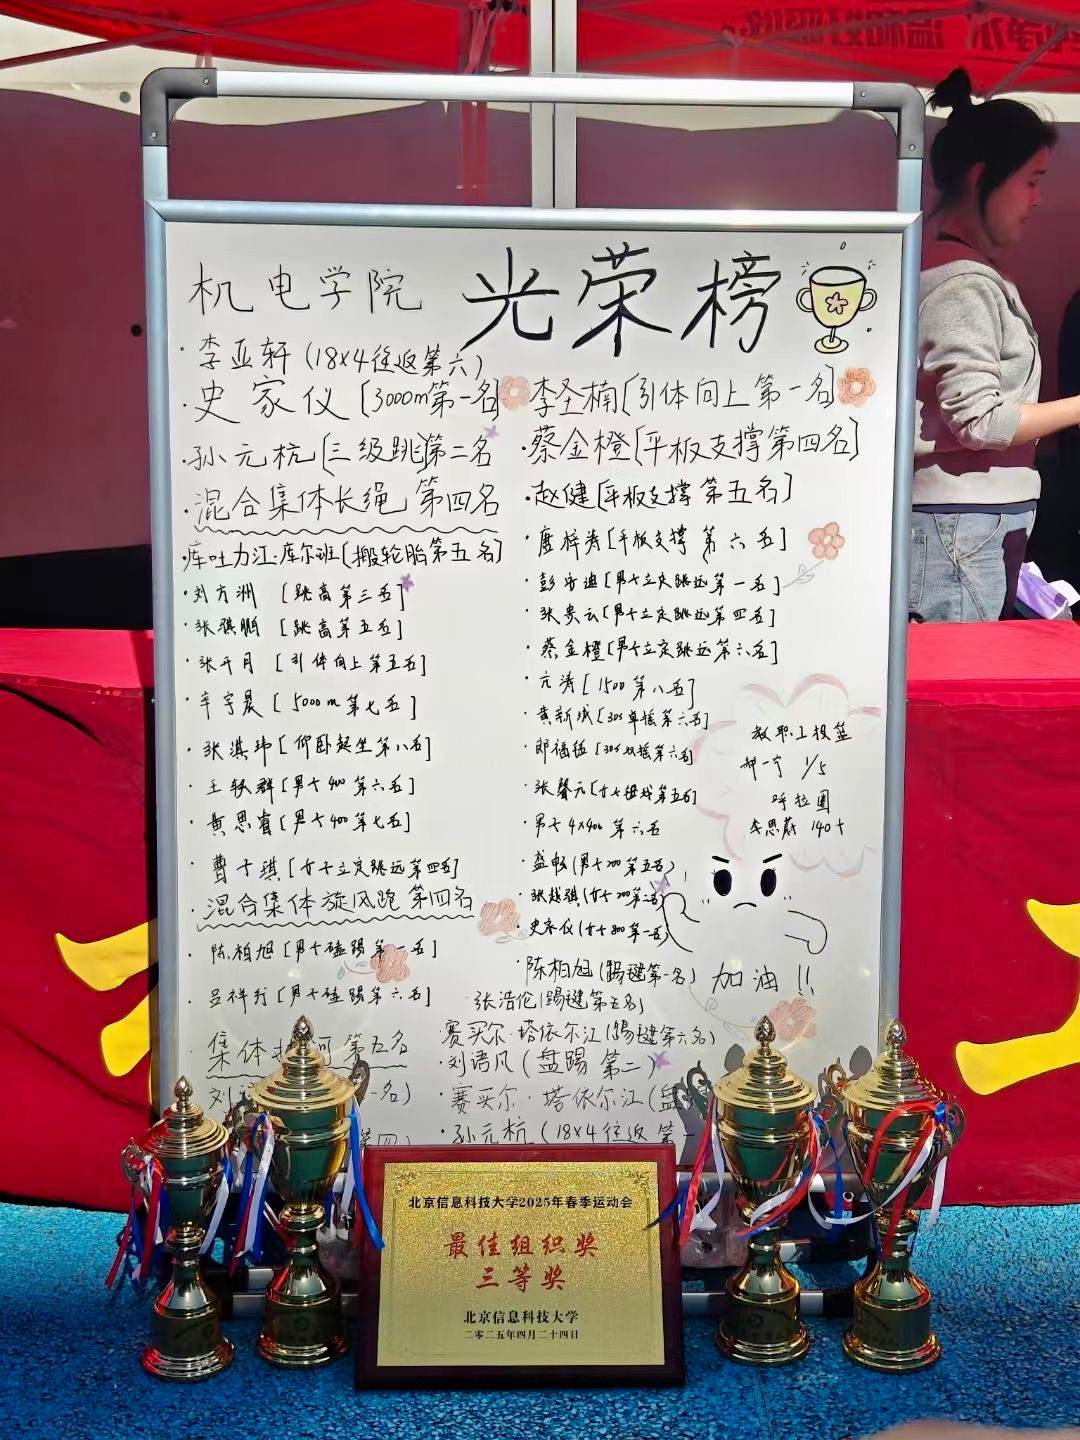 机电学院 光荣榜
·李亚轩(18×4往返第六)
·史家仪[3000m第一名]
·孙元杭[三级跳第二名
·混合集体长绳 第四名
·库吐力江·库尔班[搬轮胎第五名]
·刘方洲 [跳高第三名]
·张骐鹏 [跳高第五名]
·张千月 [引体向上第五名]
·辛宇晨[5000m第七名]
·张淇玮[仰卧起坐第八名]
·王轶群[男子400第六名]
·黄思睿[男子400第七名]
·曹子琪[女子立定跳远第四名]
·混合集体旋风跑 第四名
·陈柏旭[男子磕踢第一名]
·吕祥行[男子磕踢第六名]
集体 河 第五名
刘
·李圣楠[引体向上第一名]
·蔡金橙[平板支撑第四名]
·赵健[平板支撑第五名]
·唐梓涛[平板支撑 第六名]
·彭 迪[男子立定跳远第一名]
·张贵云[男子立定跳远第四名]
·蔡金橙[男子立定跳远第六名]
·亢涛[1500第八名]
·黄新斌[30s单摇第六名]
·郎福 [30s双摇第六名]
·张馨元[女子 第五名]
·男子4×400 第六名
·盛畅(男子200第五名)
·张越琪(女子200第二名)
·史家仪(女子800第一名)
·陈柏旭(踢毽第一名)
张浩伦(踢毽第五名)
·赛买尔·塔依尔江(踢毽第六名)
·刘语风(盘踢 第二)
·赛买尔·塔依尔江(盘
·孙元杭(18×4往返 第一
教职工投篮
郝一宁 1/5
呼拉圈
李思蔚 140个
加油!!
北京信息科技大学2025年春季运动会
最佳组织奖
三等奖
北京信息科技大学
二零二五年四月二十四日